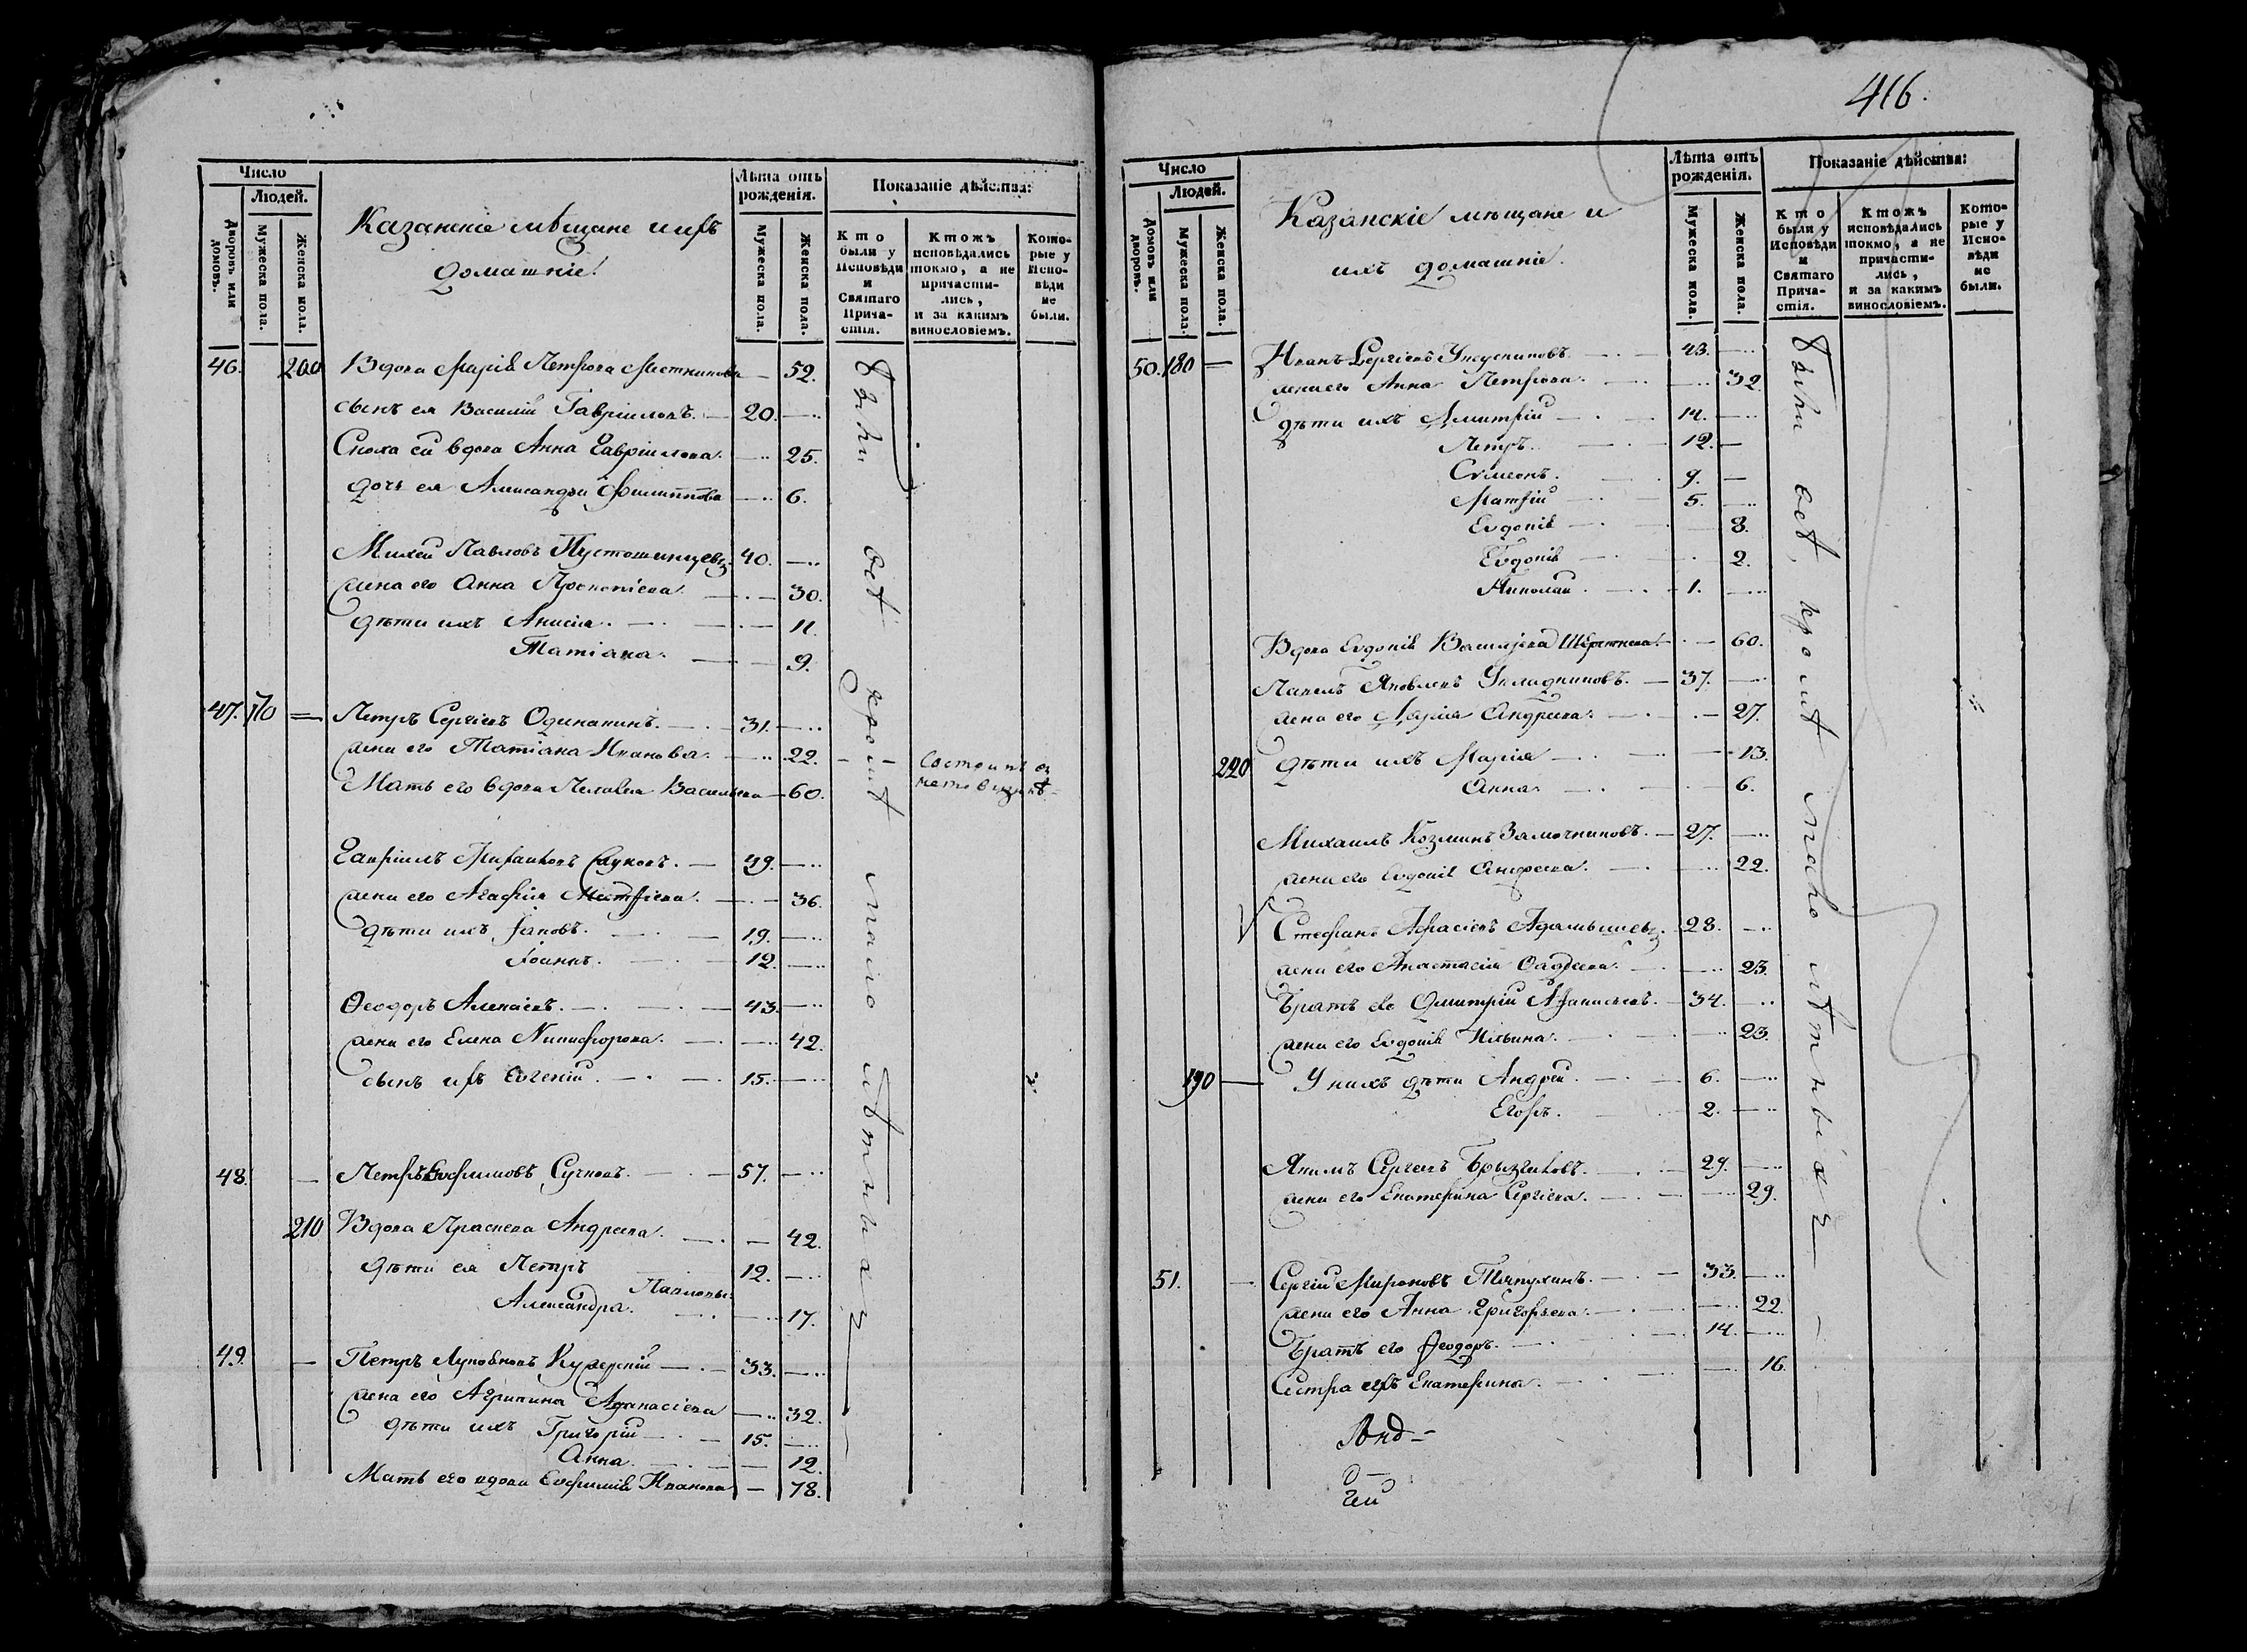 Число
Людей.
Дворовъ или домовъ.
Мужеска пола.
Женска пола.
Казанскіе мѣщане и ихъ
домашніе.
Лѣта отъ рожденія.
Мужеска пола.
Женска пола.
Показаніе дѣйства:
Кто были у Исповѣди и Святаго Причастія.
Ктожъ исповѣдались токмо, а не причастились, и за какимъ винословіемъ.
Которые у Исповѣди не были.
46. 200 Вдова Марія Петрова 52.
сынъ ея Василій Гавріиловъ. 20.
Сноха ей вдова Анна Гавріилова. 25.
дочь ея Александра Филиппова 6.
Михей Павловъ Пустошинцевъ 40.
жена его Анна Прокопіева 30.
дѣти ихъ Анисія. 11.
Татіана. 9.
47. 170 Петръ Сергіевъ Одинакинъ. 31.
жена его Татіана Иванова. 22.
Мать его вдова Пелагія Васильева 60.
Гавріилъ 49.
жена его Агафія 36.
дѣти ихъ Іаковъ. 19.
Іоаннъ. 12.
Ѳеодоръ Алексіевъ. 43.
жена его Елена Никифорова. 42.
сынъ ихъ Евгеній. 15.
48. Петръ Евфимовъ Сучковъ. 57.
210 Вдова Прасковья Андреева. 42.
дѣти ея Петръ 12.
Павловы:
Александра. 17.
49. Петръ 33.
жена его Агрипина Афанасіева 32.
дѣти ихъ Григорій 15.
Анна. 12.
Мать его вдова Евфимія Иванова 78.
были всѣ кромѣ мало лѣтныхъ
416.
Число
Людей.
Домовъ или дворовъ.
Мужеска пола.
Женска пола.
Казанскіе мѣщане и
ихъ домашніе.
Лѣта отъ рожденія.
Мужеска пола.
Женска пола.
Показаніе дѣйства:
Кто были у Исповѣди и Святаго Причастія.
Ктожъ исповѣдались токмо, а не причастились, и за какимъ винословіемъ.
Которые у Исповѣди не были.
50. 180 Иванъ Сергіевъ 43.
жена его Анна Петрова. 32.
дѣти ихъ Димитрій 14.
Петръ. 12.
Сѵмеонъ. 9.
Матфій 5.
Евдокія 8.
Евдокія 2.
Николай. 1.
Вдова Евдокія Васильева 60.
Павелъ Яковлевъ Укладниковъ. 37.
жена его Дарія Андреева. 27.
220 дѣти ихъ Марія 13.
Анна. 6.
Михаилъ Козминъ Замочниковъ. 27.
жена его Евдокія Андреева. 22.
Стефанъ 28.
жена его Анастасія 23.
Братъ его Димитрій Афанасьевъ. 34.
жена его Евдокія Ильина. 23.
190 У нихъ дѣти Андрей. 6.
Егоръ. 2.
Якимъ Сергеевъ Брызгаловъ. 29.
жена его Екатерина Сергіева. 29.
51. Сергій Мироновъ Тяпухинъ. 33.
жена его Анна Григорьева. 22.
Братъ его Ѳеодоръ. 14.
Сестра его Екатерина. 16.
были всѣ, кромѣ мало лѣтныхъ